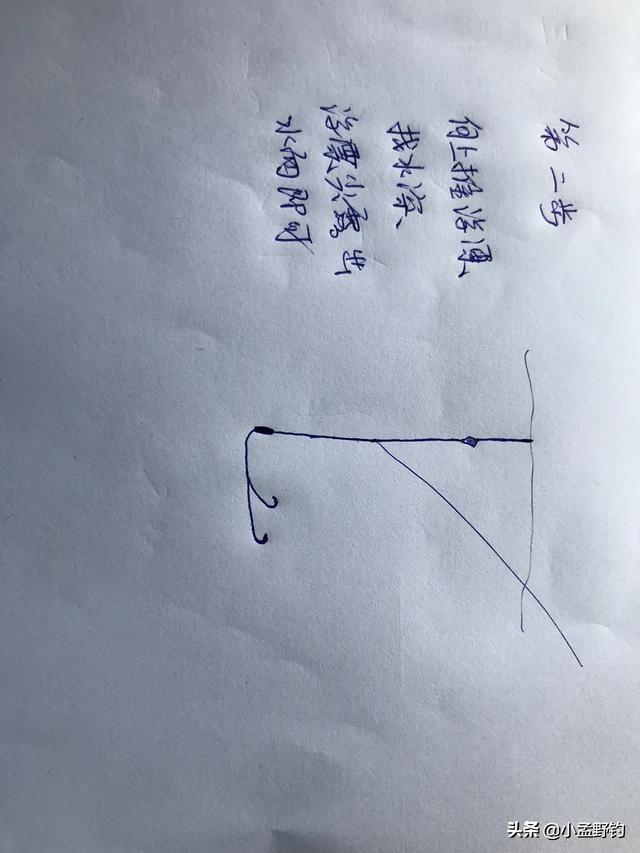 第二步
向上推浮漂
找水深
浮漂尖露出
水面即可
头条 @小孟野钓